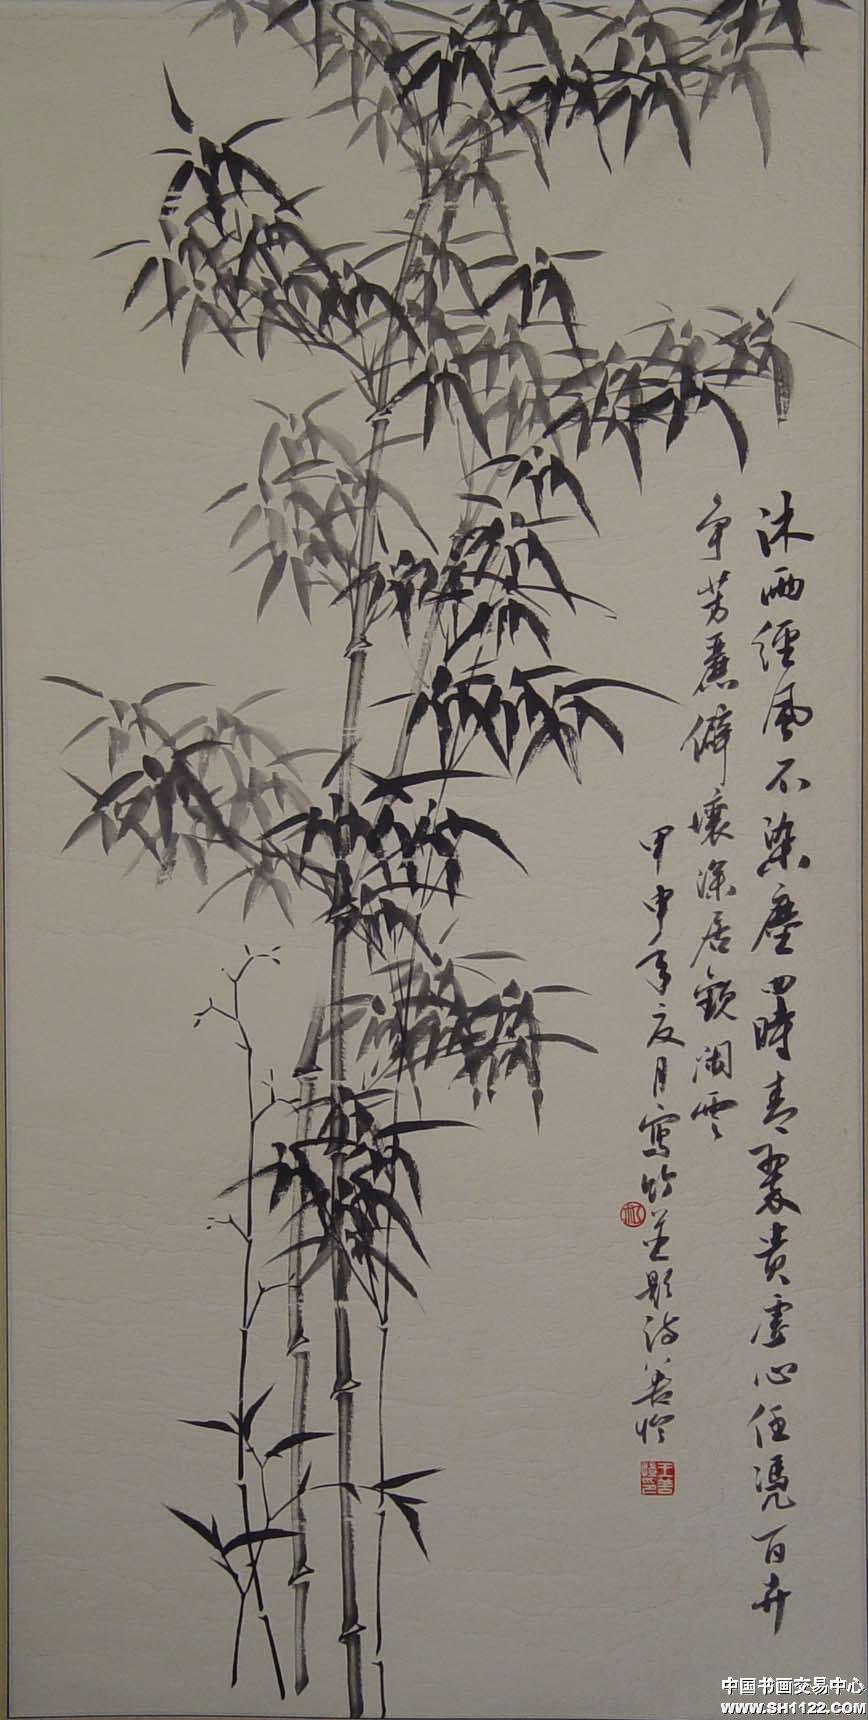 沐雨經風不染塵四時青翠貴虛心任憑百卉
爭芳麗僻壤深居觀閑雲
甲申年夏月寫竹並題詩善
王善
中国书画交易中心
www.SH1122.com